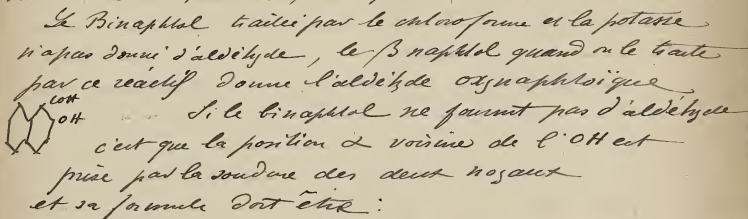 Le Binaphtol traité par le chloroforme et la potasse
n'a pas donné d'aldéhyde, le β naphtol quand on le traite
par ce réactif donne l'aldéhyde oxynaphtoïque
COH
OH
Si le binaphtol ne fournit pas d'aldéhyde
c'est que la position α voisine de l'OH est
prise par la soudure des deux noyaux
et sa formule doit être :